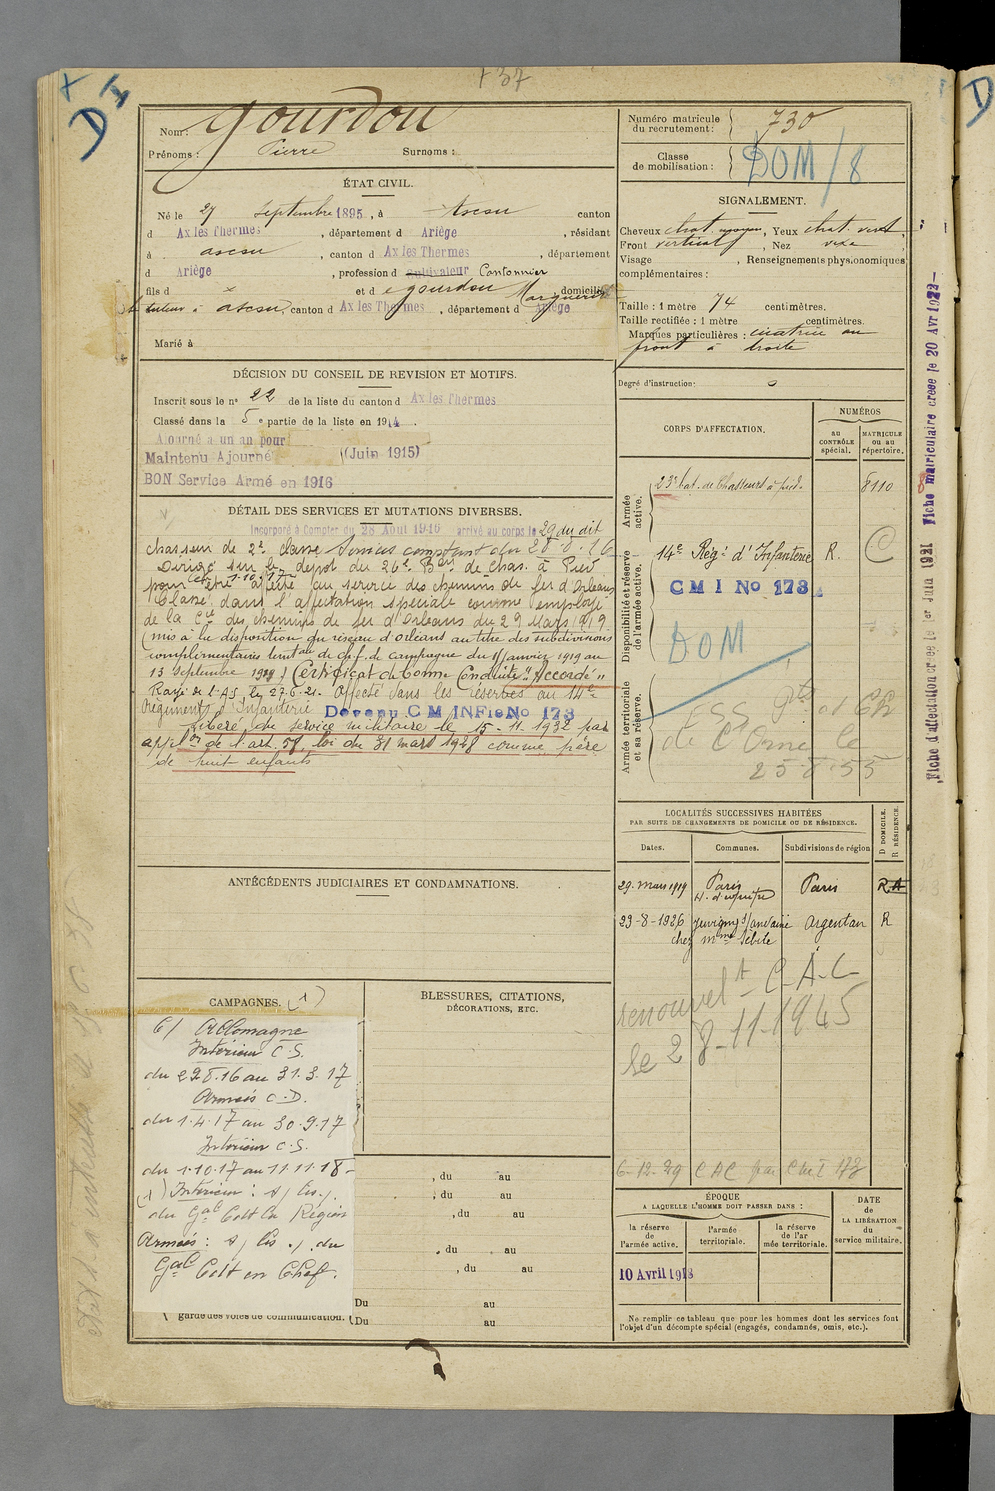 + 37
D I
D
Nom: Gourdou
Prénoms: Pierre Surnoms:
ÉTAT CIVIL.
Né le 27 Septembre 1895, à Ascou canton
d Ax les Thermes, département d Ariège, résidant
à Ascou, canton d Ax les Thermes, département
d Ariège, profession d cultivateur Cantonnier
fils d x et d e Gourdou Marguerite domiciliés
à Ascou, canton d Ax les Thermes, département d Ariège
Marié à
DÉCISION DU CONSEIL DE REVISION ET MOTIFS.
Inscrit sous le n° 22 de la liste du canton d Ax les Thermes
Classé dans la 5e partie de la liste en 1914.
Ajourné à un an pour
Maintenu Ajourné (Juin 1915)
BON Service Armé en 1916
DÉTAIL DES SERVICES ET MUTATIONS DIVERSES.
Incorporé à Compter du 28 Août 1916 arrivé au corps le 29 du dit
chasseur de 2e classe Services comptent du 28-8-16
Dirigé sur le dépôt du 26e Bon de Chas. à Pied
pour être affecté au service des chemins de fer d'Orléans
le 1-10-17
Classé dans l'affectation spéciale comme employé
de la Cie des chemins de fer d'Orléans du 29 Mars 1919
(mis à la disposition du réseau d'Orléans au titre des subdivisions
complémentaires de ch. f. de campagne du 1er janvier 1919 au
13 septembre 1919) Certificat de bonne Conduite "Accordé"
Rayé de l'A.S. le 27.6.21. Affecté dans les réserves au 14e
Régiment d'Infanterie Devenu C M INFie No 173
Libéré du service militaire le 15-11-1932 par
applon de l'art. 58, loi du 31 mars 1928 comme père
de huit enfants
ANTÉCÉDENTS JUDICIAIRES ET CONDAMNATIONS.
CAMPAGNES. (1)
C/ Allemagne
Intérieur C.S.
du 28.8.16 au 31.3.17
Armées C.D.
du 1.4.17 au 30.9.17
Intérieur C.S.
du 1.10.17 au 11.11.18-
(1) Intérieur: s/
du Gal Cdt la Région
Armées: s/ du
Gal Cdt en Chef.
garde des voies de communication.
BLESSURES, CITATIONS,
DÉCORATIONS, ETC.
, du au
, du au
, du au
, du au
, du au
Du au
Du au
Numéro matricule
du recrutement: 730
Classe
de mobilisation: DOM/8
SIGNALEMENT.
Cheveux chat. moyen, Yeux chat. vert
Front vertical, Nez
Visage , Renseignements physionomiques
complémentaires:
Taille: 1 mètre 74 centimètres.
Taille rectifiée: 1 mètre centimètres.
Marques particulières: cicatrice au
front à droite
Degré d'instruction: 0
CORPS D'AFFECTATION.
NUMÉROS
AU CONTRÔLE spécial.
MATRICULE ou au répertoire.
Armée active.
23e bat. de Chasseurs à pied. 8110
Disponibilité et réserve de l'armée active.
14e Régt d'Infanterie R. C
C M I No 173
DOM
Armée territoriale et sa réserve.
de l'Orne le
25-8-55
LOCALITÉS SUCCESSIVES HABITÉES
PAR SUITE DE CHANGEMENTS DE DOMICILE OU DE RÉSIDENCE.
Dates. Communes. Subdivisions de région D DOMICILE. R RÉSIDENCE.
29. mars 1919 Paris Paris R
23-8-1926 Juvigny s/ andaine Argentan R
chez Mme
renouvelt C.A.C
le 28-11-1945
6-12-29 CAC par C M I 173
ÉPOQUE
A LAQUELLE L'HOMME DOIT PASSER DANS:
la réserve de l'armée active.
l'armée territoriale.
la réserve de l'armée territoriale.
DATE DE LA LIBÉRATION du service militaire.
10 Avril 1918
Ne remplir ce tableau que pour les hommes dont les services font
l'objet d'un décompte spécial (engagés, condamnés, omis, etc.).
Fiche d'affectation créée le 1er Juin 1921 Fiche matriculaire créée le 20 Avr 1922-